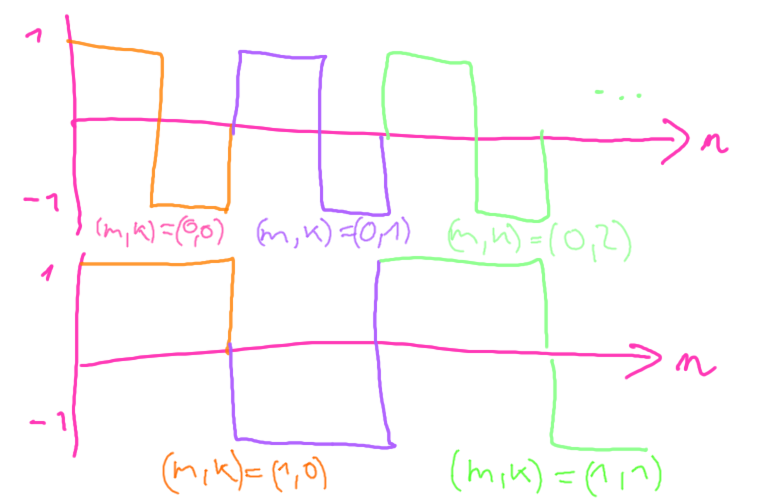 1
...
n
-1
(m,k)=(0,0) (m,k)=(0,1) (m,k)=(0,2)
1
n
-1
(m,k)=(1,0) (m,k)=(1,1)